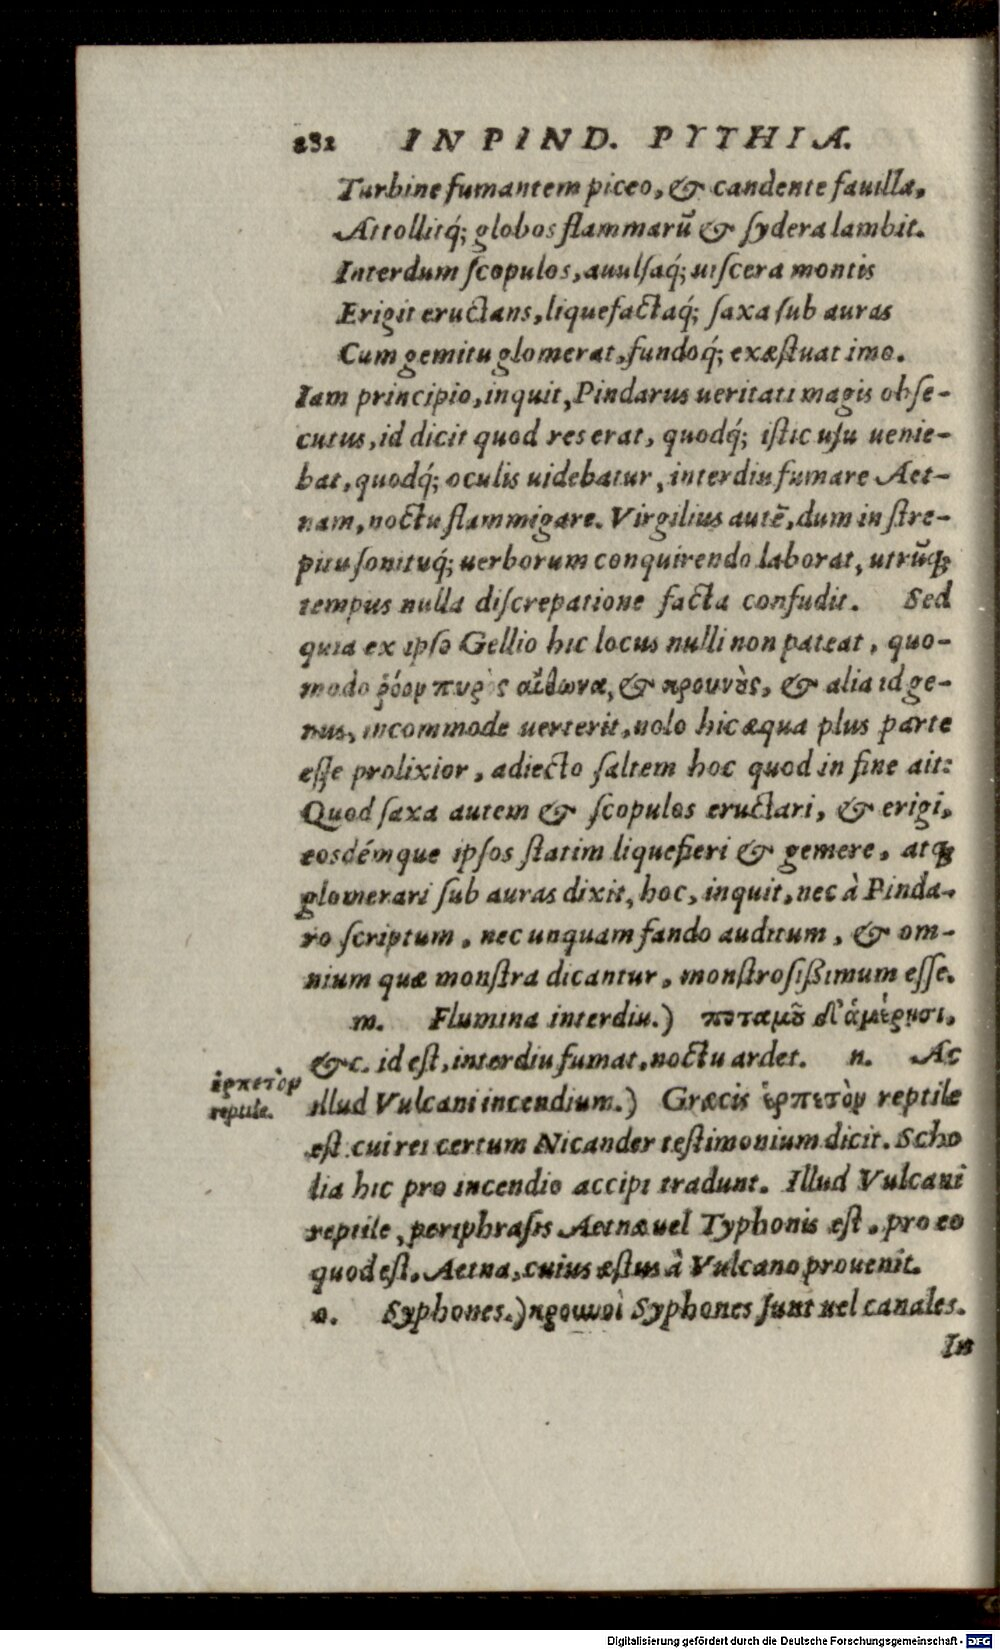 282 IN PIND. PYTHIA.
Turbine fumantem piceo, & candente fauilla,
Attollitq́; globos flammarũ & ſydera lambit.
Interdum ſcopulos, auulſaq́; uiſcera montis
Erigit eructans, liquefactaq́; ſaxa ſub auras
Cum gemitu glomerat, fundoq́; exæſtuat imo.
Iam principio, inquit, Pindarus ueritati magis obſe-
cutus, id dicit quod res erat, quodq́; iſtic uſu uenie-
bat, quodq́; oculis uidebatur, interdiu fumare Aet-
nam, noctu flammigare. Virgilius autẽ, dum in ſtre-
pitu ſonituq́; uerborum conquirendo laborat, utrũq;
tempus nulla diſcrepatione facta confudit. Sed
quia ex ipſo Gellio hic locus nulli non pateat, quo-
modo ῥόον πυρὸς αἴθωνα, & κρουνὸς, & alia id ge-
nus, incommode uerterit, nolo hic æqua plus parte
eſſe prolixior, adiecto ſaltem hoc quod in fine ait:
Quod ſaxa autem & ſcopulos eructari, & erigi,
eosdémque ipſos ſtatim liquefieri & gemere, atq;
glomerari ſub auras dixit, hoc, inquit, nec à Pinda-
ro ſcriptum, nec unquam fando auditum, & om-
nium quæ monſtra dicantur, monſtroſißimum eſſe.
m. Flumina interdiu.) ποταμοῖ δ'ἁμέρησι,
&c. id eſt, interdiu fumat, noctu ardet. n. Ac
ἑρπετὸν
reptile.
illud Vulcani incendium.) Græcis ἑρπετὸν reptile
eſt cui rei certum Nicander teſtimonium dicit. Scho
lia hic pro incendio accipi tradunt. Illud Vulcani
reptile, periphraſis Aetnæ uel Typhonis eſt, pro eo
quod eſt, Aetna, cuius æſtus à Vulcano prouenit.
o. Syphones.) κρουνοὶ Syphones ſunt uel canales.
In
Digitalisierung gefördert durch die Deutsche Forschungsgemeinschaft - DFG